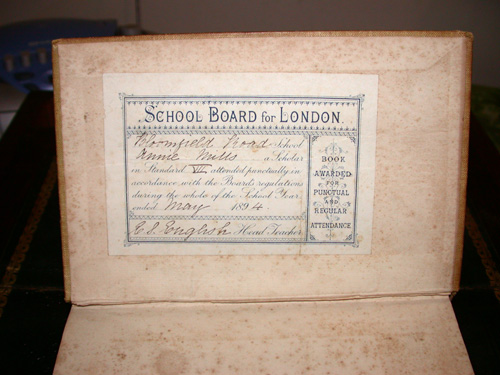 SCHOOL BOARD for LONDON.
Bloomfield Road School
Annie Mills a Scholar
in Standard VII attended punctually in
accordance with the Board's regulations
during the whole of the School Year
ended May 1894
C. S. English Head Teacher
BOOK
AWARDED
FOR
PUNCTUAL
AND
REGULAR
ATTENDANCE